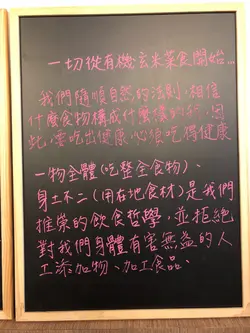 一切從有機玄米菜食開始…
我們隨順自然的法則,相信
什麼食物構成什麼樣的我,因
此,要吃出健康必須吃得健康
一物全體(吃整全食物)、
身土不二(用在地食材)是我們
推崇的飲食哲學,並拒絕
對我們身體有害無益的人
工添加物、加工食品。